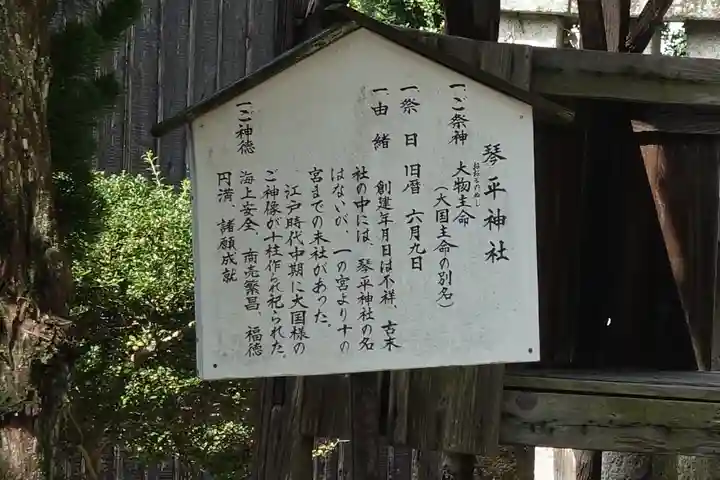 琴平神社
一ご祭神 大物主命
おおものぬし
(大国主命の別名)
一祭日 旧暦 六月九日
一由緒 創建年月日は不祥、古木
社の中には、琴平神社の名
はないが、一の宮より十の
宮までの末社があった。
江戸時代中期に大国様の
ご神像が十柱作られ祀られた。
一ご神徳 海上安全、商売繁昌、福徳
円満、諸願成就